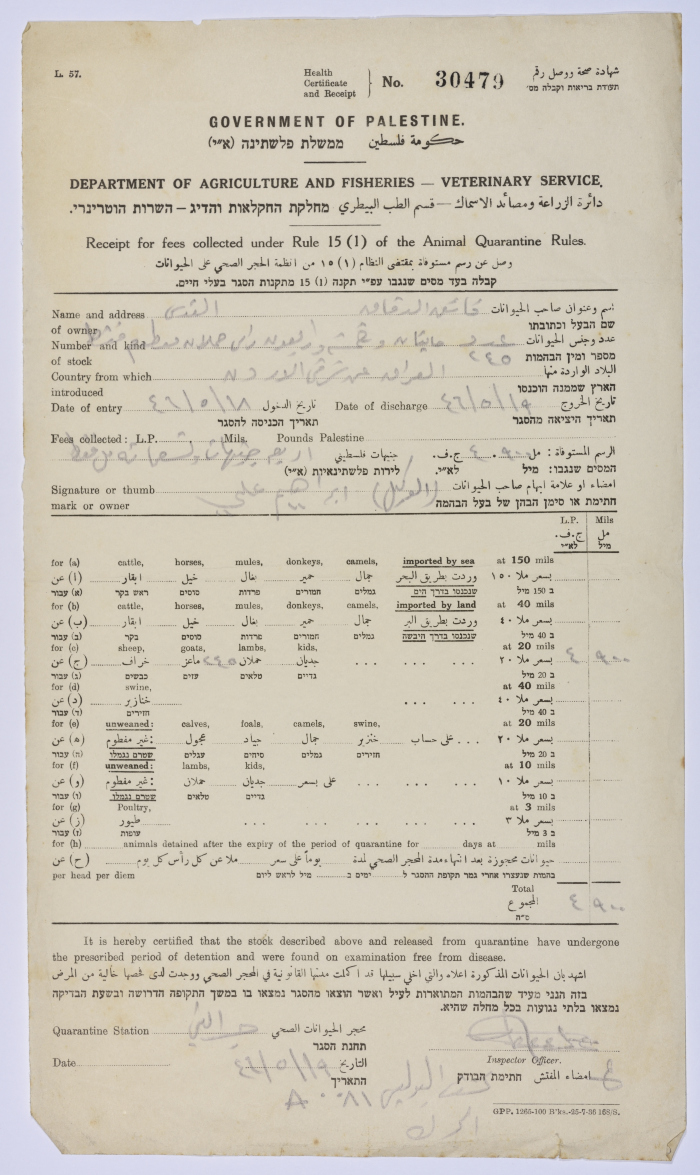 L. 57.
Health Certificate and Receipt } No. 30479 شهادة صحة ووصل رقم
תעודת בריאות וקבלה מס׳
GOVERNMENT OF PALESTINE.
حكومة فلسطين ממשלת פלשתינה (א״י)
DEPARTMENT OF AGRICULTURE AND FISHERIES — VETERINARY SERVICE.
دائرة الزراعة ومصائد الاسماك — قسم الطب البيطري מחלקת החקלאות והדיג – השרות הוטרינרי.
Receipt for fees collected under Rule 15 (1) of the Animal Quarantine Rules.
وصل عن رسم مستوفاة بمقتضى النظام ١٥ (١) من انظمة الحجر الصحي على الحيوانات
קבלה בעד מסים שנגבו עפ״י תקנה 15 (1) מתקנות הסגר בעלי חיים.
Name and address القدس اسم وعنوان صاحب الحيوانات
of owner שם הבעל וכתובתו
Number and kind عدد مايتان وخمسة واربعون راس عدد وجنس الحيوانات
of stock ٢٤٥ מספר ומין הבהמות
Country from which العراق عن شرق الاردن البلاد الواردة منها
introduced הארץ שממנה הוכנסו
Date of entry ٤٦/٥/١٨ تاريخ الدخول Date of discharge ٤٦/٥/١٩ تاريخ الخروج
תאריך הכניסה להסגר תאריך היציאה מהסגר
Fees collected: L.P. , Mils. Pounds Palestine اربع جنيهات وتسعمائة مل فقط جنيهات فلسطيني ج.ف. ٤ مل ٩٠٠ الرسم المستوفاة :
לירות פלשתינאיות (א״י) לא״י. מיל המסים שנגבו:
Signature or thumb ابراهيم علي (الوكيل) امضاء او علامة ابهام صاحب الحيوانات
mark or owner חתימת או סימן הבהן של בעל הבהמה
L.P. Mils
ج.ف. مل
לא״י מיל
for (a) cattle, horses, mules, donkeys, camels, imported by sea at 150 mils
(أ) عن ابقار خيل بغال حمير جمال وردت بطريق البحر بسعر ملا ١٥٠
(א) עבור ראש בקר סוסים פרדות חמורים גמלים שנכנסו בדרך הים ב 150 מיל
for (b) cattle, horses, mules, donkeys, camels, imported by land at 40 mils
(ب) عن ابقار خيل بغال حمير جمال وردت بطريق البر بسعر ملا ٤٠
(ב) עבור בקר סוסים פרדות חמורים גמלים שנכנסו בדרך היבשה ב 40 מיל
for (c) sheep, goats, lambs, kids, at 20 mils
(ج) عن خراف ماعز ٢٤٥ حملان جديان بسعر ملا ٢٠ ٤ ٩٠٠
(ג) עבור כבשים עזים טלאים גדיים ב 20 מיל
for (d) swine, at 40 mils
(د) عن خنازير بسعر ملا ٤٠
(ד) עבור חזירים ב 40 מיל
for (e) unweaned: calves, foals, camels, swine, at 20 mils
(ه) عن غير مفطوم: عجول جياد جمال خنزير على حساب بسعر ملا ٢٠
(ה) עבור שטרם נגמלו עגלים סיחים גמלים חזירים ב 20 מיל
for (f) unweaned: lambs, kids, at 10 mils
(و) عن غير مفطوم: حملان جديان على بسعر بسعر ملا ١٠
(ו) עבור שטרם נגמלו טלאים גדיים ב 10 מיל
for (g) Poultry, at 3 mils
(ز) عن طيور بسعر ملا ٣
(ז) עבור עופות ב 3 מיל
for (h) animals detained after the expiry of the period of quarantine for days at mils
(ح) عن حيوانات محجوزة بعد انتهاء مدة المحجر الصحي لمدة يوماً على سعر ملا عن كل رأس كل يوم
per head per diem בהמות שנעצרו אחרי גמר תקופת ההסגר ל ימים ב מיל לראש ליום
Total
المجموع ٤ ٩٠٠
ס״ה
It is hereby certified that the stock described above and released from quarantine have undergone
the prescribed period of detention and were found on examination free from disease.
اشهد بان الحيوانات المذكورة اعلاه والتي اخلي سبيلها قد اكملت مدتها القانونية في المحجر الصحي ووجدت لدى فحصها خالية من المرض
בזה הנני מעיד שהבהמות המתוארות לעיל ואשר הוצאו מהסגר נמצאו בו במשך התקופה הדרושה ובשעת הבדיקה
נמצאו בלתי נגועות בכל מחלה שהיא.
Quarantine Station محجر الحيوانات الصحي
תחנת הסגר
Date ٤٦/٥/١٩ التاريخ
התאריך
Inspector Officer.
امضاء المفتش חתימת הבודק
GPP. 1265-100 B'ks.-25-7-36 168/S.